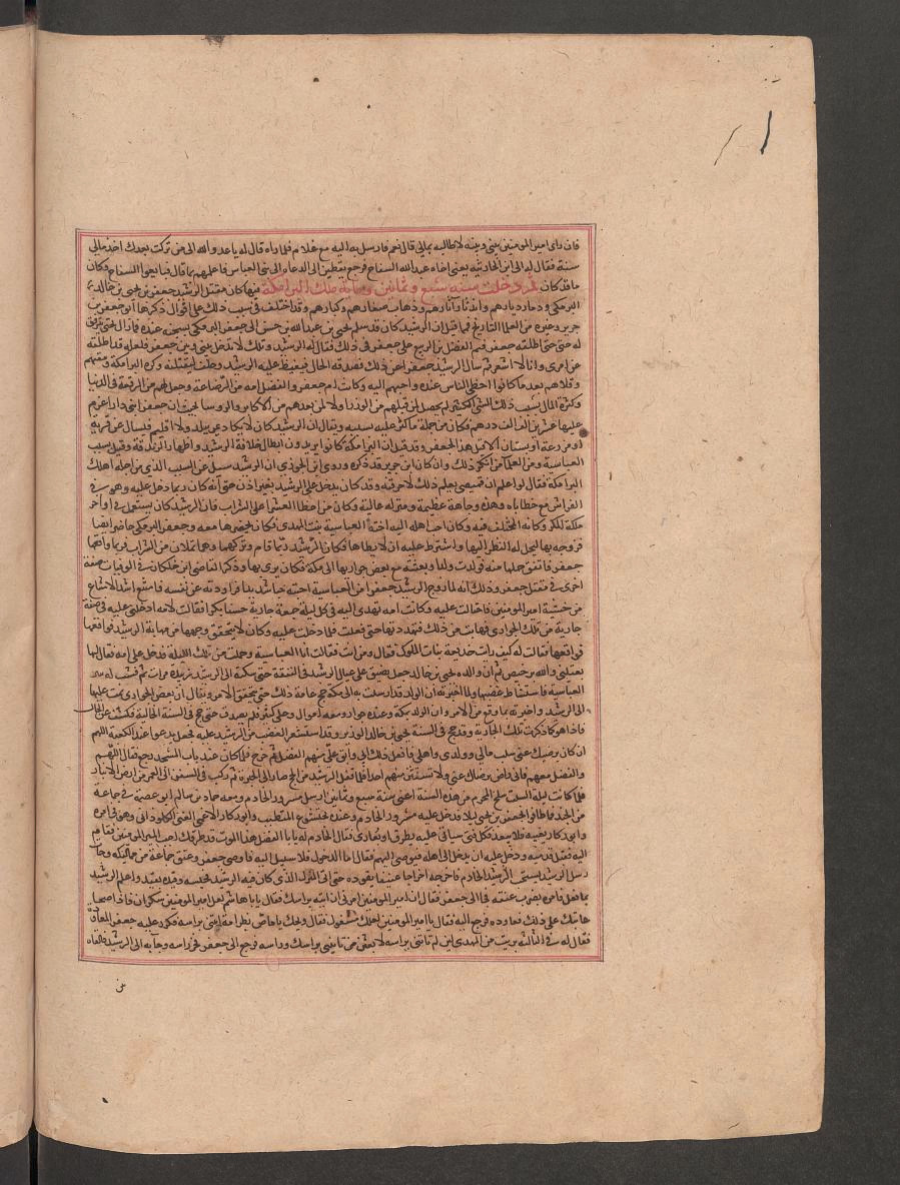 فان راى امير المومنين بيني وبينه لاطالبه بمالي قال نعم فارسل به اليه مع غلام فلما راه قال له يا عدو الله الى من تركت بعدك اخذ مالي
سنة فقال له الى ابن الحارثية يعني اخاه عبد الله السفاح فرجع يقطين الى الدعاه الى بني العباس فاعلمهم بما قال فبايعوا السفاح وكان
ما قد كان ثم دخلت سنة سبع وثمانين ومايه مهلك البرامكة فيها كان مقتل الرشيد جعفر بن يحيى بن خالد بن
البرمكي ودمار ديارهم واندثار آثارهم وذهاب صغارهم وكبارهم وقد اختلف في سبب ذلك على اقوال ذكرها ابو جعفر بن
جرير وغيره من العلما التاريخ فما قيل ان الرشيد كان قد سلم يحيى بن عبد الله بن حسن الى جعفر البرمكي يسجنه عنده فما زال يحيى يترفق
له حتى اطلقه جعفر فنم الفضل بن الربيع على جعفر في ذلك فقال له الرشيد ويلك لا تدخل بيني وبين جعفر فلعله قد اطلقه
عن امري وانا لا اشعر ثم سال الرشيد جعفر عن ذلك فصدقه الحال فتغيظ عليه الرشيد وحلف ليقتلنه وكره البرامكة ومقتهم
وقلاهم بعد ما كانوا احظى الناس عنده واحبهم اليه وكانت ام جعفر والفضل امه من الرضاعة وجعل لهم من الرفعة في الدنيا
وكثرة المال بسبب ذلك الشي الكثير لم يحصل لمن قبلهم من الوزرا ولا لمن بعدهم من الاكابر والروسا بحيث ان جعفر ابنى دارا غرم
عليها عشرين الف الف درهم فكان من جملة ما كثر عليه بسببه ويقال ان الرشيد كان لا يكاد يمر ببلد ولا اقليم فيسال عن قرية
او مزرعة او بستان الا قيل هذا لجعفر وقد قيل ان البرامكة كانوا يريدون ابطال خلافة الرشيد واظهار الزندقة وقيل بسبب
العباسية ومن العلما من انكر ذلك وان كان ابن جرير قد ذكره وروى ابن الجوزي ان الرشيد سيل عن السبب الذي من اجله اهلك
البرامكة فقال لو اعلم ان قميصي يعلم ذلك لاحرقته وقد كان يدخل على الرشيد بغير اذن حتى انه كان ربما دخل عليه وهو في
الفراش مع حظاياه وهذه وجاهة عظيمة ومنزله عالية وكان من احظا العشرا على الشراب فان الرشيد كان يستعمل في اواخر
ملكه المسكر وكانه المختلف فيه وكان احب اهله اليه اخته العباسية بنت المهدي فكان يحضرها معه وجعفر البرمكي حاضر ايضا
فزوجه بها ليحل له النظر اليها واشترط عليه ان لا يطاها فكان الرشيد ربما قام وتركهما وهما ثملان من الشراب فربما واقعها
جعفر فاتفق حملها منه فولدت ولدا وبعثته مع بعض جواريها الى مكة فكان يربى بها وذكر القاضي ابن خلكان في الوفيات صفة
اخرى في مقتل جعفر وذلك انه لما زوج الرشيد جعفرا من العباسية احبته حبا شديدا فراودته عن نفسه فامتنع اشد الامتناع
من خشية امير المومنين فاحتالت عليه وكانت امه تهدي اليه في كل ليلة جمعة جارية حسنا بكرا فقالت لامه ادخليني عليه في صفة
جارية من تلك الجواري فهابت من ذلك فتهددتها حتى فعلت فلما دخلت عليه وكان لا يتحقق وجهها من مهابة الرشيد فواقعها
فواقعها فقالت له كيف رايت خديعة بنات الملوك فقال ومن انت فقالت انا العباسية وحملت من تلك الليلة فدخل على امه فقال لها
بعتيني والله برخيص ثم ان والده يحيى بن خالد جعل يضيق على عيال الرشيد في النفقة حتى شكت الى الرشيد زبيدة مرات ثم
العباسية فاستشاط غضبا ولما اخبرته ان الولد قد ارسلت به الى مكة حج عامه ذلك حتى يتحقق الامر ويقال ان بعض الجواري نمت عليها
الى الرشيد واخبرته بما وقع من الامر وان الولد بمكة وعنده جوار ومعه اموال وحلي كثير فلم يصدق حتى حج في السنة الخالية فكشف عن الحال
فاذا هو كما ذكرت تلك الجارية وقد حج في السنة يحيى بن خالد الوزير وقد استشعر الغضب من الرشيد عليه فجعل يدعو عند الكعبة اللهم
ان كان يرضيك عني سلب مالي وولدي واهلي فافعل ذلك بي وابق علي منهم الفضل ثم خرج فلما كان عند باب المسجد رجع فقال اللهم
والفضل معهم فاني راض برضاك عني ولا تستثن منهم احدا فلما قفل الرشيد من الحج صار الى الحيرة ثم ركب في السفن الى العمر من ارض الانبار
فلما كانت ليلة السبت سلخ المحرم من هذه السنة اعني سنة سبع وثمانين ارسل مسرور الخادم ومعه حماد بن سالم ابو عصمة في جماعة
من الجند فاطافوا بجعفر بن يحيى ليلا فدخل عليه مسرور الخادم وعنده بختيشوع المتطبب وابو ركار الاعمى المغني الكلوذاني وهو في امره
وابو ركار يغنيه فلا تبعد فكل فتى سياتي عليه يطرق او يغادي فقال الخادم له يابا الفضل هذا الموت قد طرقك اجب امير المومنين فقام
اليه فقبل قدميه ودخل عليه ان يدخل الى اهله فيوصي اليهم فقال اما الدخول فلا سبيل اليه فاوصى جعفر وعتق جماعة من مماليكه وجات
رسل الرشيد يستحثون الخادم فاخرجه اخراجا عنيفا يقوده حتى اتى المنزل الذي كان فيه الرشيد فحبسه وقيده بقيد واعلم الرشيد
بما فعل فامره بضرب عنقه فجا الى جعفر فقال ان امير المومنين امرني ان اتيه براسك فقال يابا هاشم لعل امير المومنين سكران فاذا صحا
عاتبك على ذلك فعاوده فرجع اليه فقال يا امير المومنين لعلك مشغول فقال ويحك يا ماص بظر امه ايتني براسه فكرر عليه جعفر المعاودة
فقال له في الثالثة بريت من المهدي لين لم تاتني براسه لابعثن من ياتيني براسك وراسه فرجع الى جعفر فحز راسه وجا به الى الرشيد فالقاه